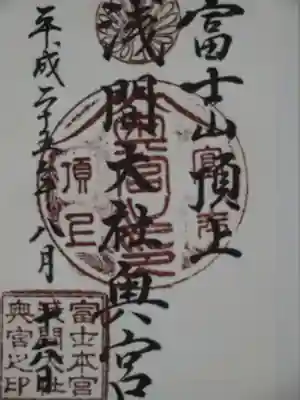 富士山頂上
浅間大社奥宮
平成二十五年八月
頂上
富士本宮
浅間大社
奥宮之印